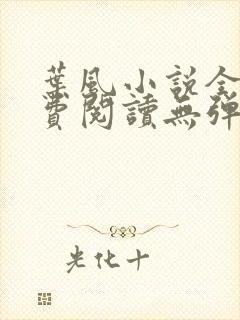 葉風小説全
費閱讀無彈
光化十